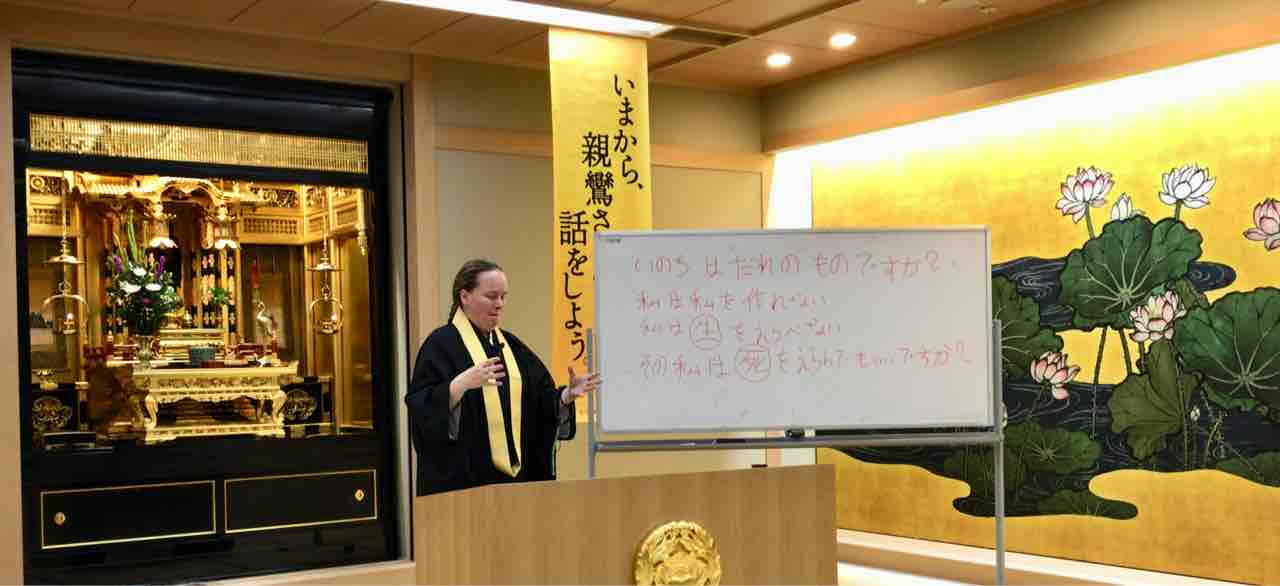 いまから、
親鸞さ
話をしよう。
いのちはだれのものですか？
私は私を作れない
私は生をえらべない
その私は死をえらんでもいいですか？